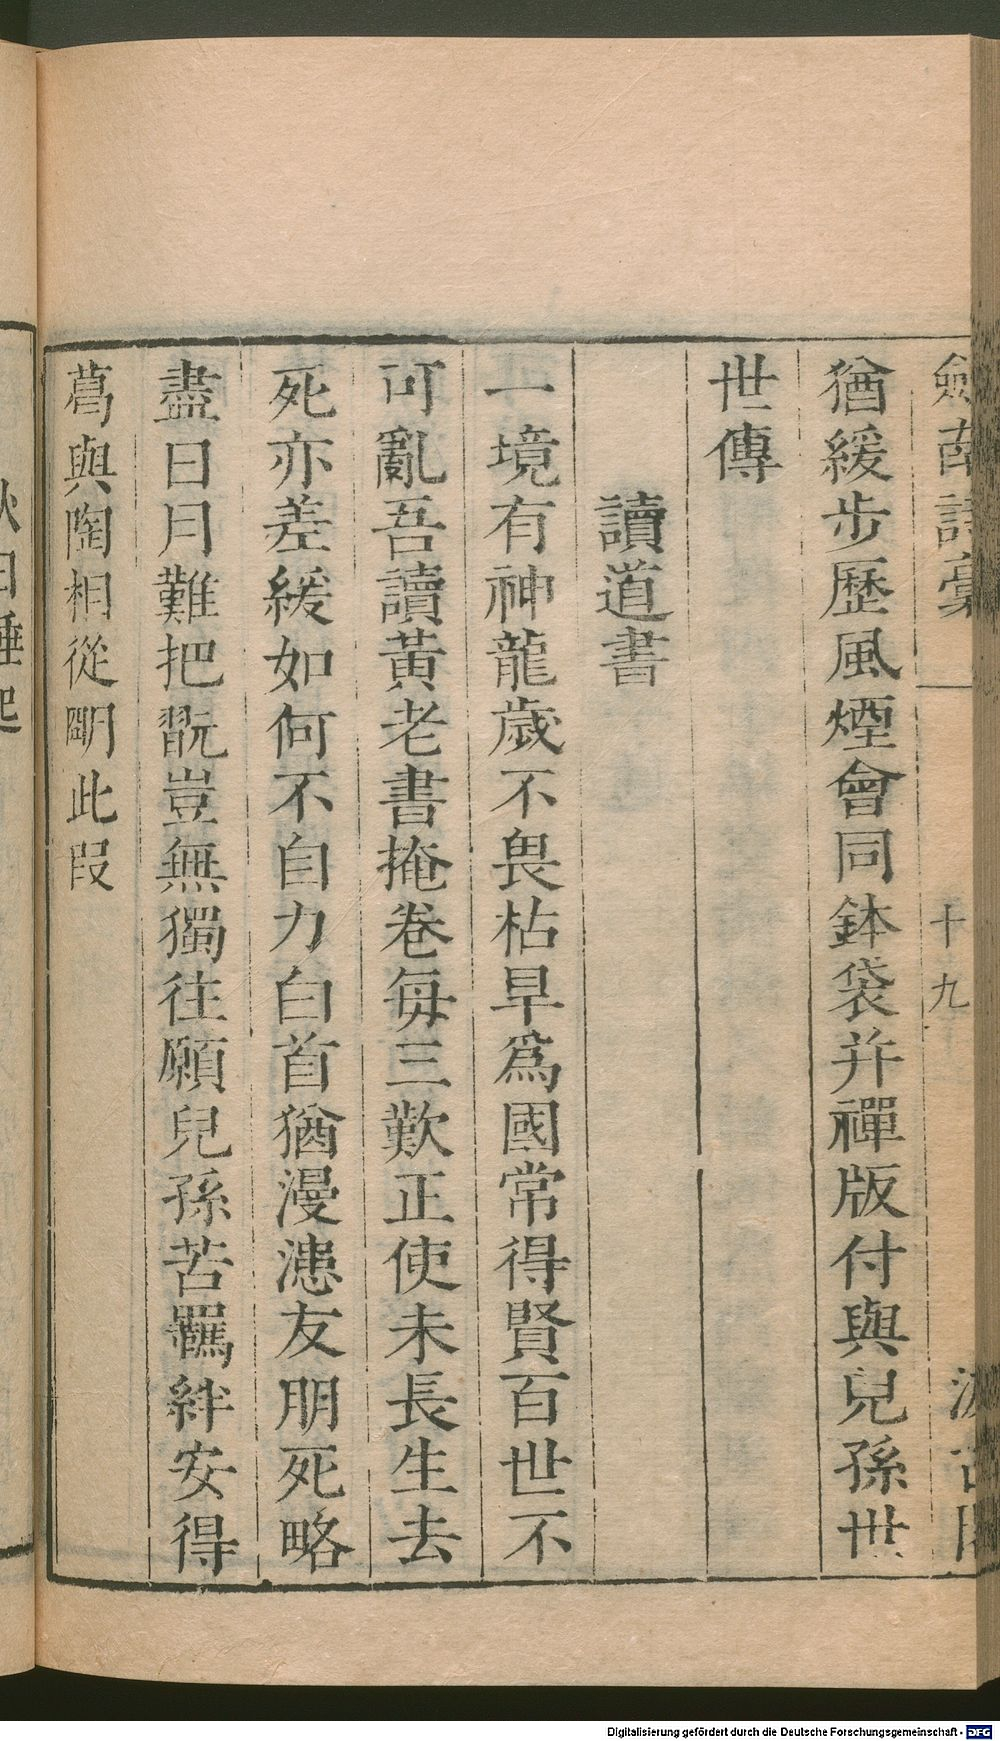 劒南詩稾　十九　汲古閣
猶緩步歷風煙會同鉢袋幷禪版付與兒孫世
世傳
讀道書
一境有神龍歲不畏枯旱爲國常得賢百世不
可亂吾讀黃老書掩卷每三歎正使未長生去
死亦差緩如何不自力白首猶漫漶友朋死略
盡日月難把翫豈無獨往願兒孫苦羈絆安得
葛與陶相從剛此叚
秋日睡起
Digitalisierung gefördert durch die Deutsche Forschungsgemeinschaft - DFG